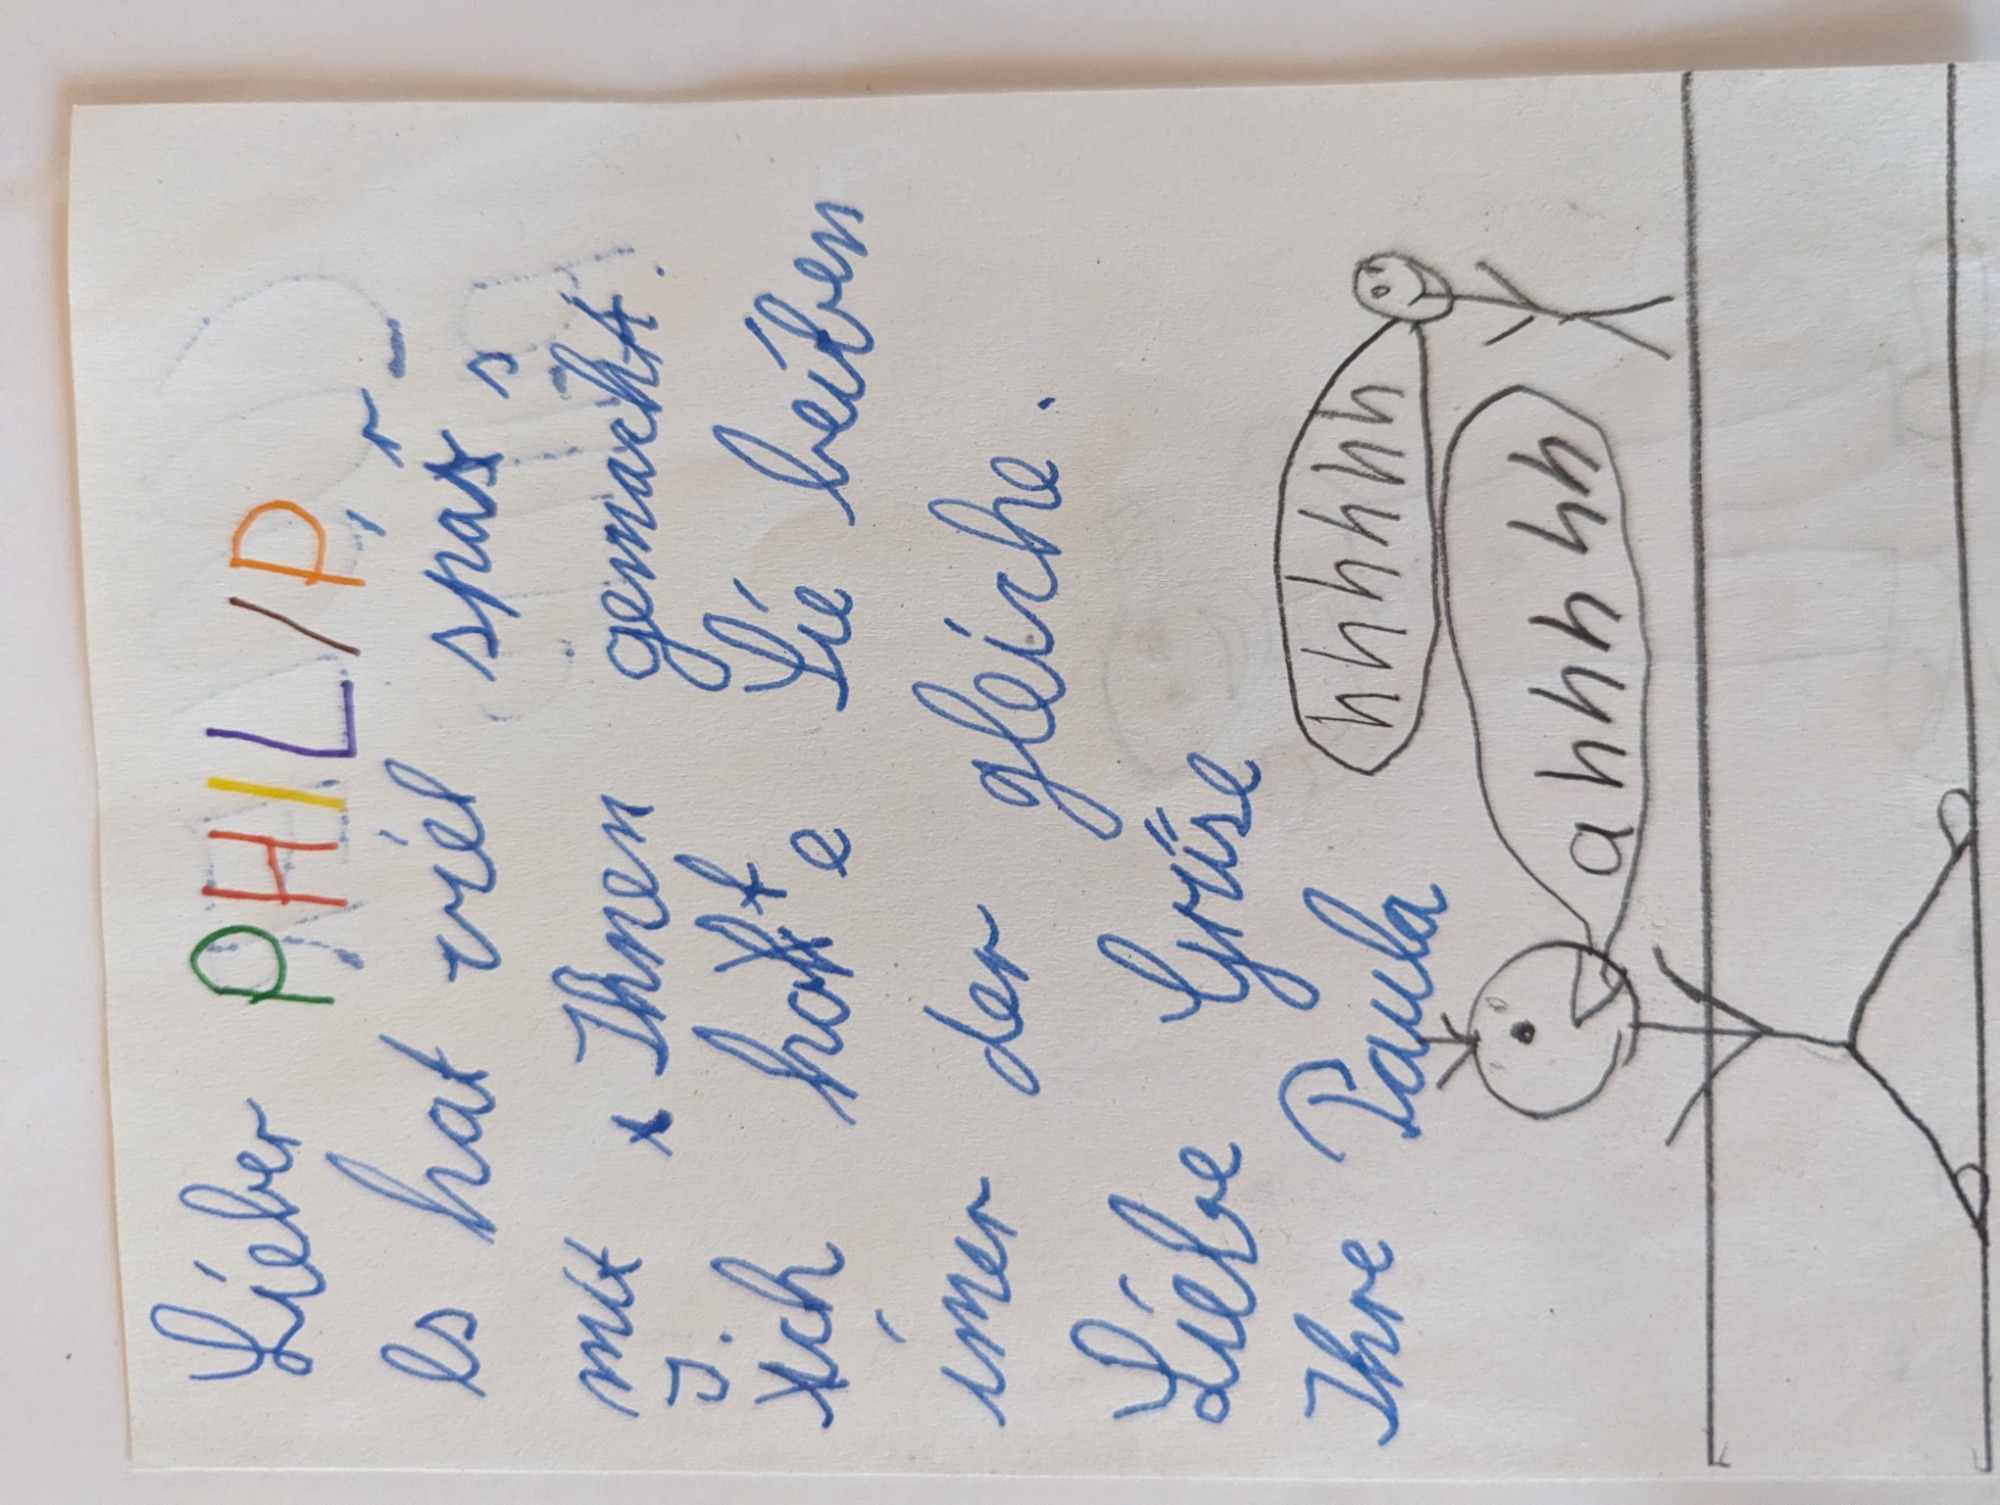 Lieber PHILIP,
Es hat viel spass
mit Ihnen gemacht.
Ich hoffe Sie beiben
imer der gleiche.
Liebe Grüse
Ihre Paula
hhhhhh
ahhhhh